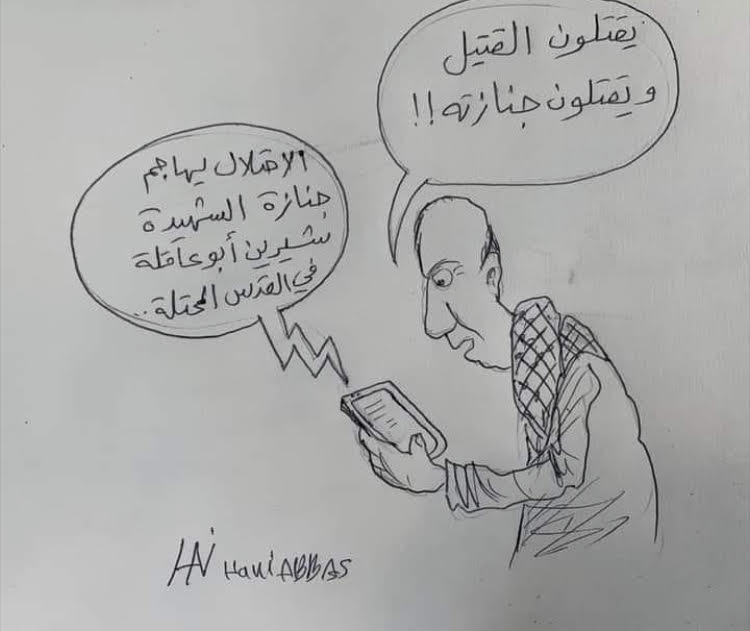 يقتلون القتيل
و يقتلون جنازته!!
الاحتلال يهاجم
جنازة الشهيدة
شيرين أبو عاقلة
في القدس المحتلة..
HANI Hani ABBAS